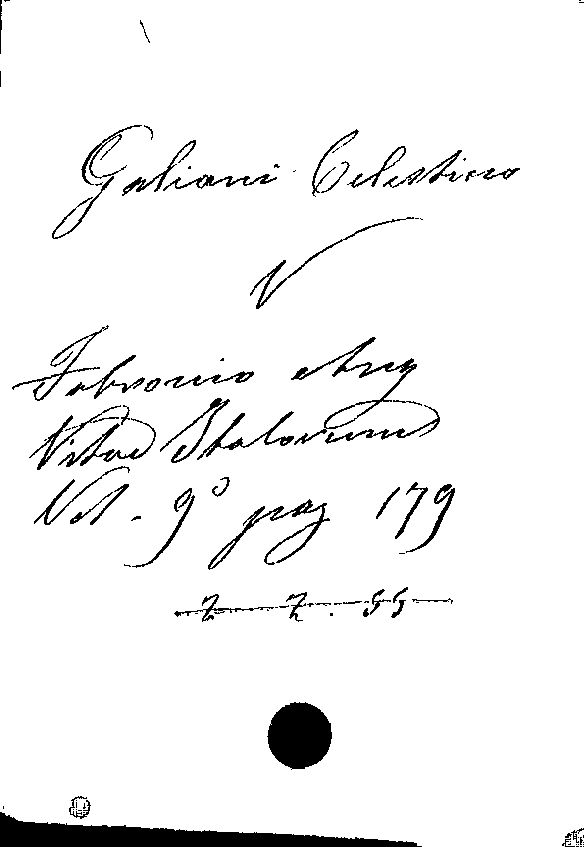 Galiani Celestino
V
Fabronio Ang
Vitae Italorum
Vol. 9º pag 179
2 2. 55